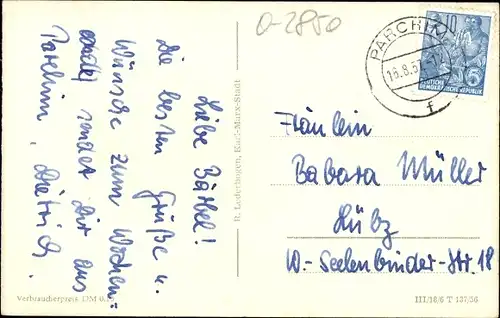 O-2850
Liebe Bärbel!
Die besten Grüße u.
Wünsche zum Wochen-
ende sendet Dir aus
Parchim, Dietrich.
R. Lederbogen, Karl-Marx-Stadt
Verbraucherpreis DM 0.
PARCHIM
16.8.57
f
10
DEUTSCHE
DEMOKRATISCHE REPUBLIK
Fräulein
Babara Müller
Lübz
W.-Seelenbinder-Str. 18
III/18/6 T 137/56